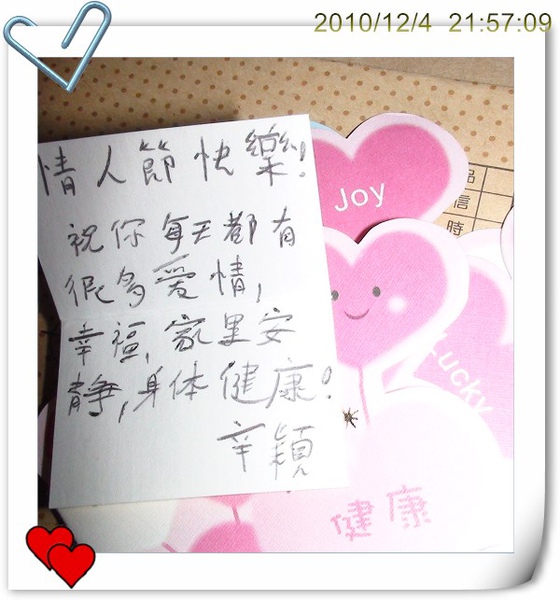 2010/12/4 21:57:09
情人節快樂!
祝你每天都有
很多愛情,
幸福,家里安
靜,身体健康!
辛穎
Joy
Lucky
品
信
時
健康